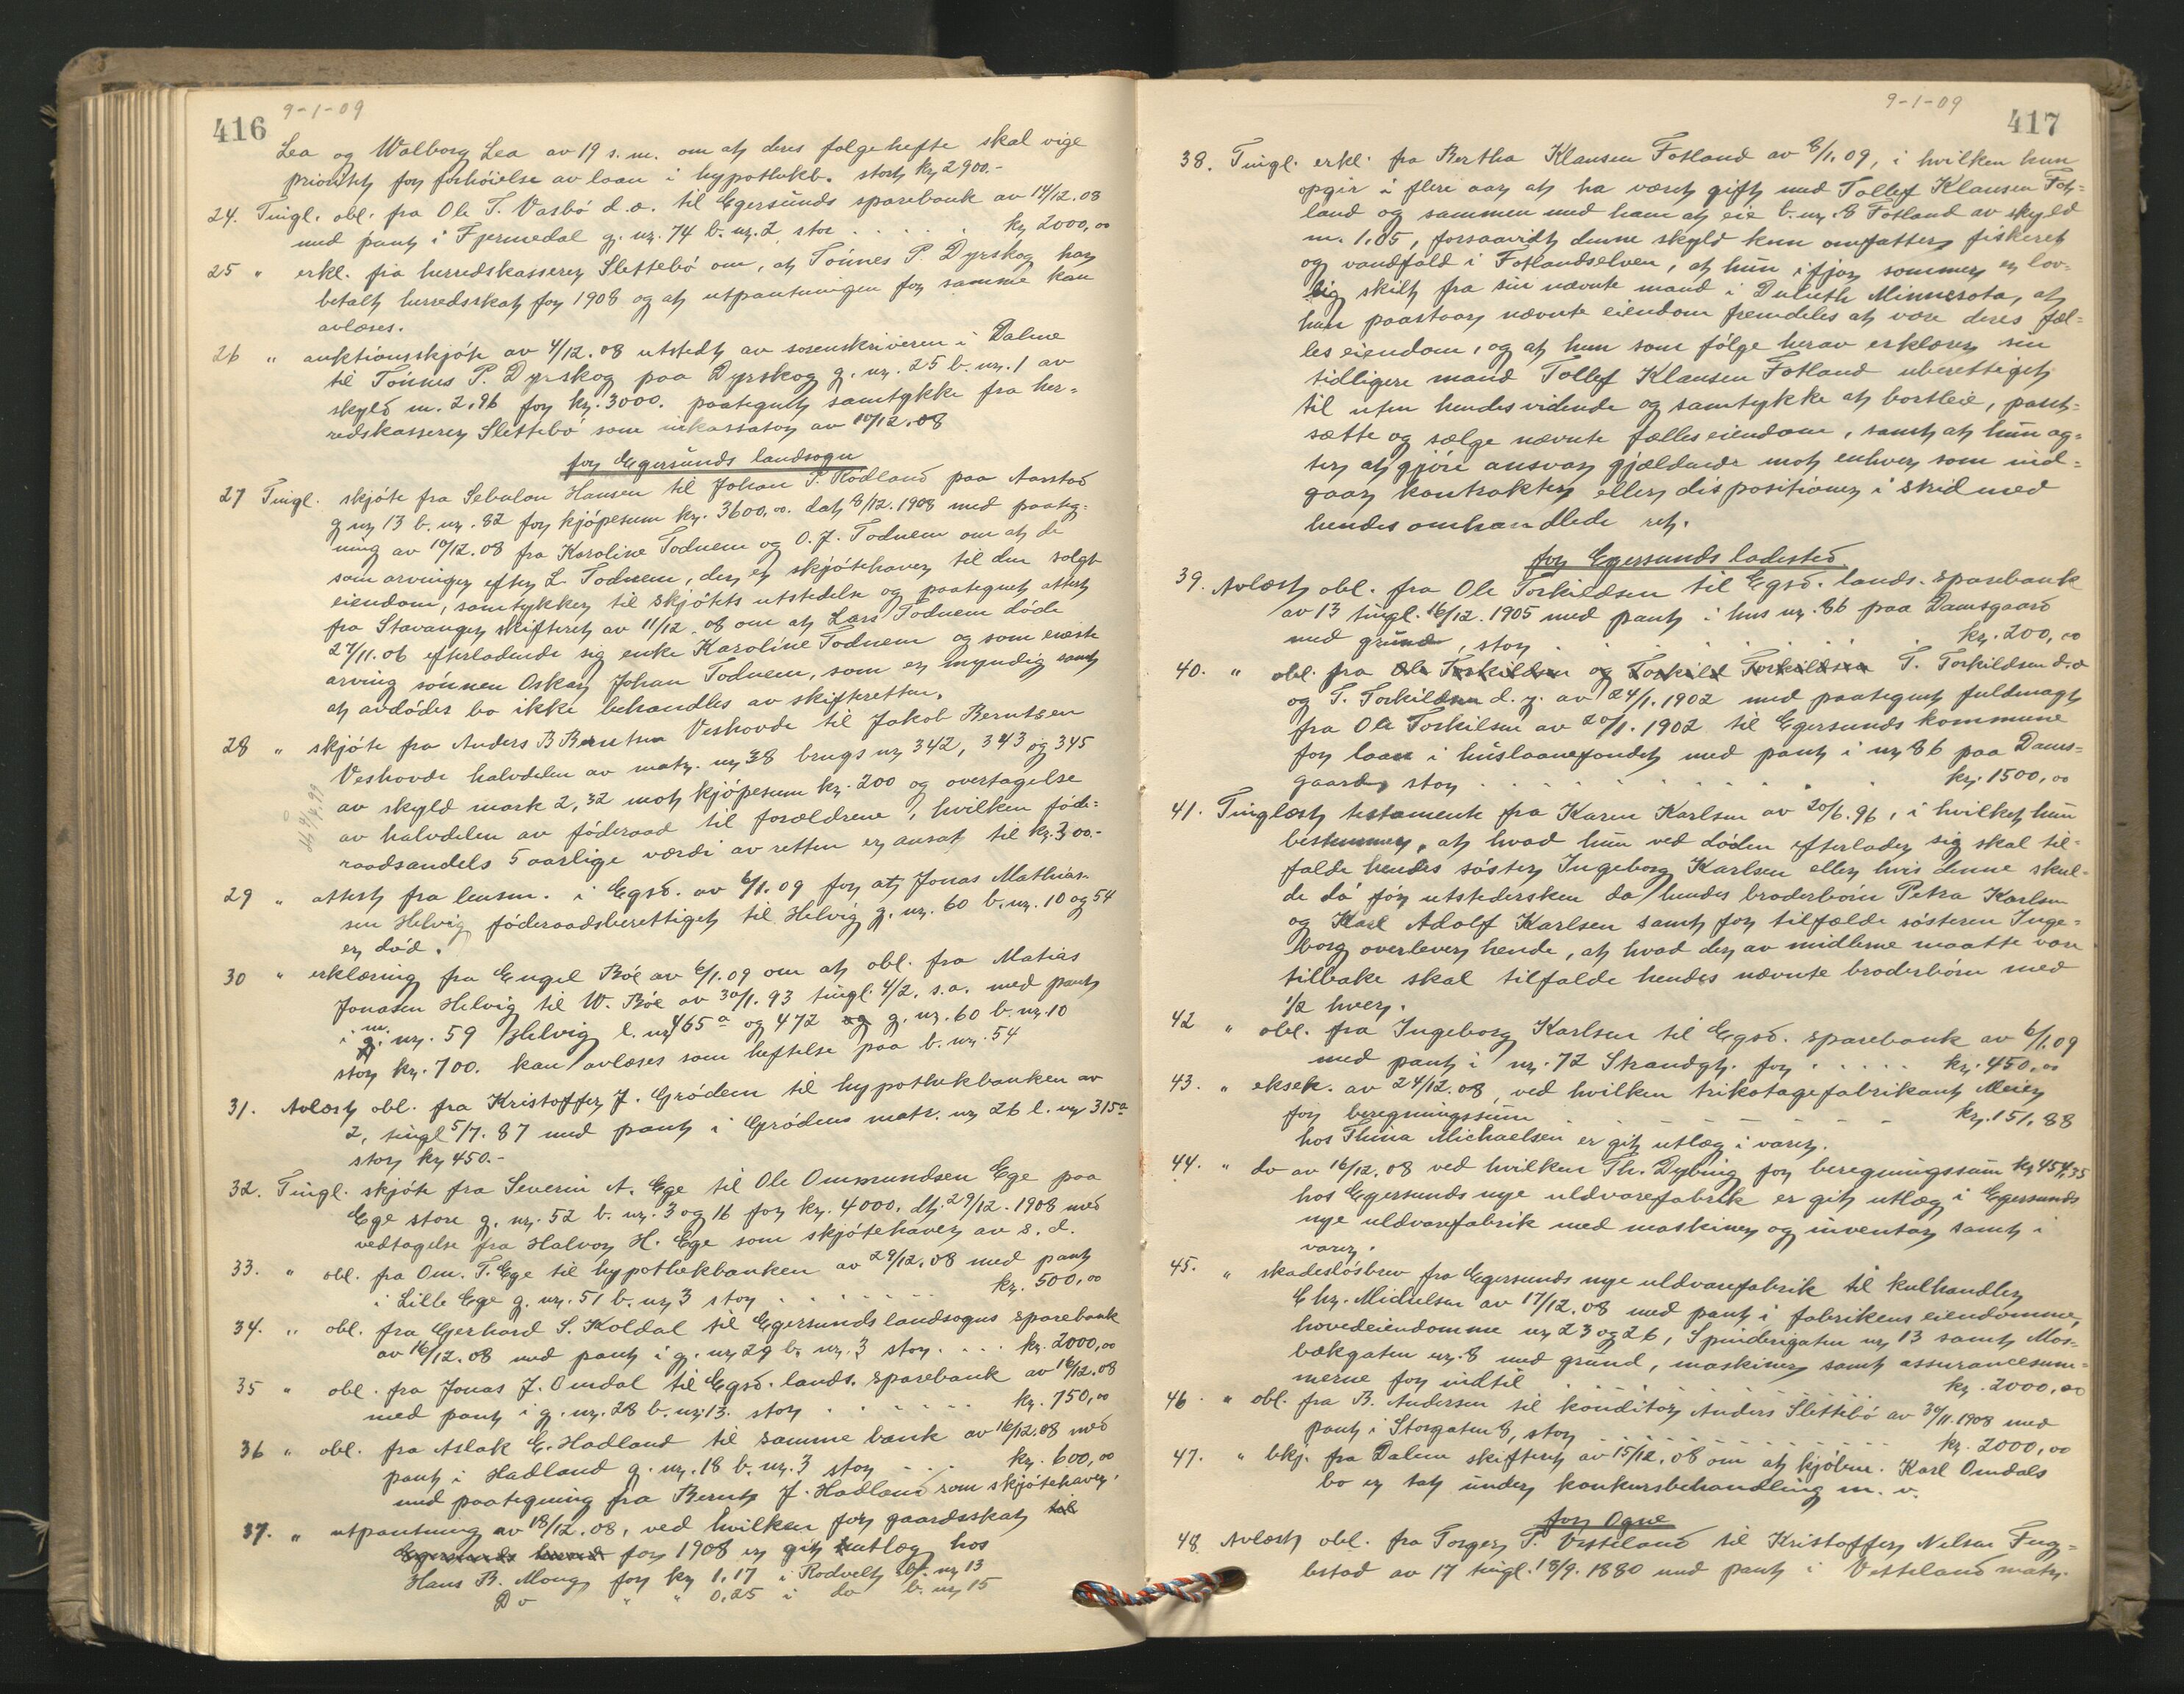 416
9-1-09
Lea og Walborg Lea av 19 s.m. om at deres følgehefte skal vige
prioritet for forhøielse av laan i hypothekb. stort kr 2900.-
24. Tingl. obl. fra Ole T. Vasbø d.æ. til Egersunds sparebank av 14/12.08
med pant i Fjermedal g. nr. 74 b. nr. 2 stor . . . . . kr 2000,00
25 " erkl. fra herredskasserer Slettebø om, at Tønnes P. Dyrskog har
betalt herredsskat for 1908 og at utpantningen for samme kan
avlæses.
26 " auktionsskjøte av 4/12.08 utstedt av sorenskriveren i Dalene
til Tønnes P. Dyrskog paa Dyrskog g. nr. 25 b. nr. 1 av
skyld m. 2,96 for kr. 3000. paategnet samtykke fra her-
redskasserer Slettebø som inkassator av 10/12.08
for Egersunds landsogn
27 Tingl. skjøte fra Sebulon Hansen til Johan T. Rodland paa Aarstad
g nr 13 b. nr. 82 for kjøpesum kr. 3600,00. dat 8/12.1908 med paateg-
ning av 10/12.08 fra Karoline Todnem og O. J. Todnem om at de
som arvinger efter L. Todnem, der er skjøtehaver til den solgte
eiendom, samtykker til skjøtets utstedelse og paategnet attest
fra Stavanger skifteret av 11/12.08 om at Lars Todnem døde
27/11.06 efterladende sig enke Karoline Todnem og som eneste
arving sønnen Oskar Johan Todnem, som er myndig samt
at avdødes bo ikke behandles av skifteretten.
28 " skjøte fra Anders B Berntsen Veshovde til Jakob Berntsen
Veshovde halvdelen av matr. nr 38 brugs nr 342, 343 og 345
av skyld mark 2,32 mot kjøpesum kr. 200 og overtagelse
av halvdelen av føderaad til forældrene, hvilken føde-
raadsandels 5 aarlige værdi av retten er ansat til kr. 300.-
29 " attest fra lensm. i Egsd. av 6/1.09 for at Jonas Mathias-
sen Helvig føderaadsberettiget til Helvig g. nr. 60 b. nr. 10 og 54
er død.
30 " erklæring fra Engel Bøe av 6/1.09 om at obl. fra Matias
Jonasen Helvig til W. Bøe av 30/1.93 tingl. 4/2. s.a. med pant
i m. nr. 59 Helvig l. nr 465a og 472 og g. nr. 60 b. nr. 10
stor kr. 700. kan avlæses som heftelse paa b. nr. 54
31. Avlæst obl. fra Kristoffer J. Grødem til hypothekbanken av
2, tingl 5/7.87 med pant i Grødens matr. nr 26 l. nr 315a
stor kr 450.-
32. Tingl. skjøte fra Severin A. Ege til Ole Ommundsen Ege paa
Ege store g. nr. 52 b. nr. 3 og 16 for kr. 4000. dt. 29/12.1908 med
vedtagelse fra Halvor H. Ege som skjøtehaver av s. d.
33. " obl. fra Om. T. Ege til hypothekbanken av 29/12.08 med pant
i Lille Ege g. nr. 51 b. nr 3 stor . . . . . . . kr. 500,00
34. " obl. fra Gerhard S. Koldal til Egersunds landsogns sparebank
av 16/12.08 med pant i g. nr 29 b. nr. 3 stor . . . kr. 2000,00
35 " obl. fra Jonas J. Omdal til Egsd. lands. sparebank av 16/12.08
med pant i g. nr. 28 b. nr. 13. stor . . . . . . kr. 750,00
36 " obl. fra Aslak E. Hadland til samme bank av 16/12.08 med
pant i Hadland g. nr. 18 b. nr. 3 stor . . . kr. 600,00
med paategning fra Bernt J. Hadland som skjøtehaver.
37. " utpantning av 18/12.08, ved hvilken for gaardsskat til
Egersunds herred for 1908 er git utlæg hos
Hans B. Mong for kr 1,17 i Rodvelt b. nr 13
Do " " 0,25 i do b. nr 15
9-1-09
417
38. Tingl. erkl. fra Bertha Klausen Fotland av 8/1.09, i hvilken hun
opgir i flere aar at ha været gift med Tollef Klausen Fot-
land og sammen med ham at eie b. nr. 8 Fotland av skyld
m. 1,05, forsaavidt denne skyld kun omfatter fiskeret
og vandfald i Fotlandselven, at hun ifjor sommer er lov-
lig skilt fra sin nævnte mand i Duluth Minnesota, at
hun paastaar nævnte eiendom fremdeles at være deres fæl-
les eiendom, og at hun som følge herav erklærer sin
tidligere mand Tollef Klausen Fotland uberettiget
til uten hendes vidende og samtykke at bortleie, pant-
sætte og sælge nævnte fælleseiendom, samt at hun ag-
ter at gjøre ansvar gjældende mot enhver som ind-
gaar kontrakter eller dispositioner i strid med
hendes omhandlede ret.
for Egersunds ladested
39. Avlæst obl. fra Ole Torkildsen til Egsd. lands. sparebank
av 13 tingl. 16/12.1905 med pant i hus nr. 86 paa Damsgaard
med grund, stor . . . . . . . . kr. 200,00
40. " obl. fra Ole Torkildsen og Torkild Torkildsen T. Torkildsen d.æ
og T. Torkildsen d. y. av 24/1.1902 med paategnet fuldmagt
fra Ole Torkilsen av 20/1.1902 til Egersunds kommune
for laan i huslaanefondet med pant i nr 86 paa Dams-
gaard, stor . . . . . . . . . . kr. 1500,00
41. Tinglæst testamente fra Karen Karlsen av 20/6.96, i hvilket hun
bestemmer, at hvad hun ved døden efterlader sig skal til-
falde hendes søster Ingeborg Karlsen eller hvis denne skul-
de dø før utstedersken da hendes broderbørn Petra Karlsen
og Karl Adolf Karlsen samt for tilfælde søsteren Inge-
borg overlever hende, at hvad der av midlerne maatte være
tilbake skal tilfalde hendes nævnte broderbørn med
1/2 hver.
42 " obl. fra Ingeborg Karlsen til Egsd. sparebank av 6/1.09
med pant i nr. 72 Strandgt. for . . . . . kr. 450,00
43. " eksek. av 24/12.08, ved hvilken trikotagefabrikant Meier
for beregningssum . . . . . kr. 151,88
hos Thina Michaelsen er git utlæg i varer.
44. " do av 16/12.08 ved hvilken Th. Dybing for beregningssum kr 454,35
hos Egersunds nye uldvarefabrik er git utlæg i Egersunds
nye uldvarefabrik med maskiner og inventar samt i
varer.
45. " skadesløsbrev fra Egersunds nye uldvarefabrik til kulhandler
Chr. Michelsen av 17/12.08 med pant i fabrikens eiendomme,
hovedeiendomme nr 23 og 26, Spinderigaten nr 13 samt Mos-
bækgaten nr. 8 med grund, maskiner samt assurancesum-
merne for indtil . . . . . . . . . . kr. 2000,00
46. " obl. fra B. Andersen til konditor Anders Slettebø av 30/11.1908 med
pant i Storgaten 8, stor . . . . . . . . . . kr. 2000,00
47. " bkj. fra Dalene skifteret av 15/12.08 om at kjøbm. Karl Omdals
bo er tat under konkursbehandling m. v.
for Ogne
48. Avlæst obl. fra Torger T. Vetteland til Kristoffer Nelsen Fug-
lestad av 17 tingl. 18/9.1880 med pant i Vetteland matr.